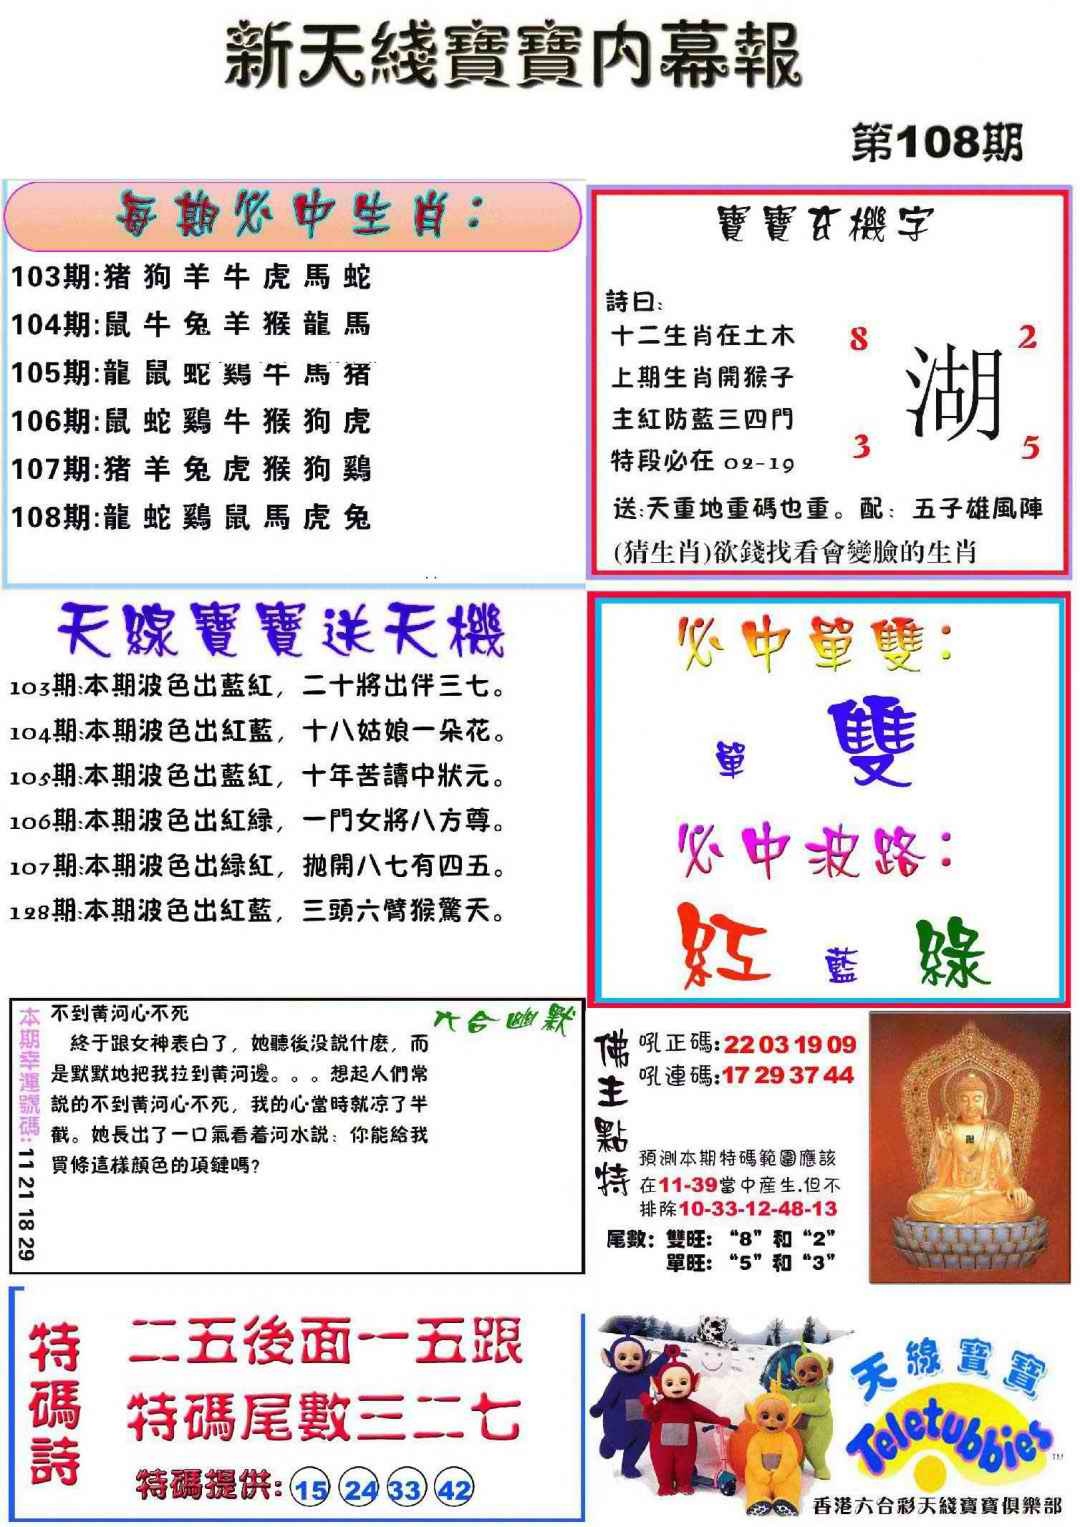 新天綫寶寶内幕報
第108期
每期必中生肖：
103期:猪 狗 羊 牛 虎 馬 蛇
104期:鼠 牛 兔 羊 猴 龍 馬
105期:龍 鼠 蛇 鷄 牛 馬 猪
106期:鼠 蛇 鷄 牛 猴 狗 虎
107期:猪 羊 兔 虎 猴 狗 鷄
108期:龍 蛇 鷄 鼠 馬 虎 兔
寶寶玄機字
詩曰:
十二生肖在土木
上期生肖開猴子
主紅防藍三四門
特段必在 02-19
8 2
湖
3 5
送:天重地重碼也重。配：五子雄風陣
(猜生肖)欲錢找看會變臉的生肖
天線寶寶送天機
103期:本期波色出藍紅，二十將出伴三七。
104期:本期波色出紅藍，十八姑娘一朵花。
105期:本期波色出藍紅，十年苦讀中狀元。
106期:本期波色出紅緑，一門女將八方尊。
107期:本期波色出緑紅，抛開八七有四五。
128期:本期波色出紅藍，三頭六臂猴驚天。
必中單雙：
單 雙
必中波路：
紅 藍 綠
本期幸運號碼:11 21 18 29
六合幽默
不到黄河心不死
終于跟女神表白了，她聽後没説什麽，而
是默默地把我拉到黄河邊。。。想起人們常
説的不到黄河心不死，我的心當時就凉了半
截。她長出了一口氣看着河水説：你能給我
買條這樣顔色的項鍵嗎?
佛主點特
吼正碼:22 03 19 09
吼連碼:17 29 37 44
預測本期特碼範圍應該
在11-39當中産生.但不
排除10-33-12-48-13
尾數：雙旺：“8”和“2”
單旺：“5”和“3”
特碼詩
二五後面一五跟
特碼尾數三二七
特碼提供: 15 24 33 42
天線寶寶
Teletubbies
TM
香港六合彩天綫寶寶俱樂部